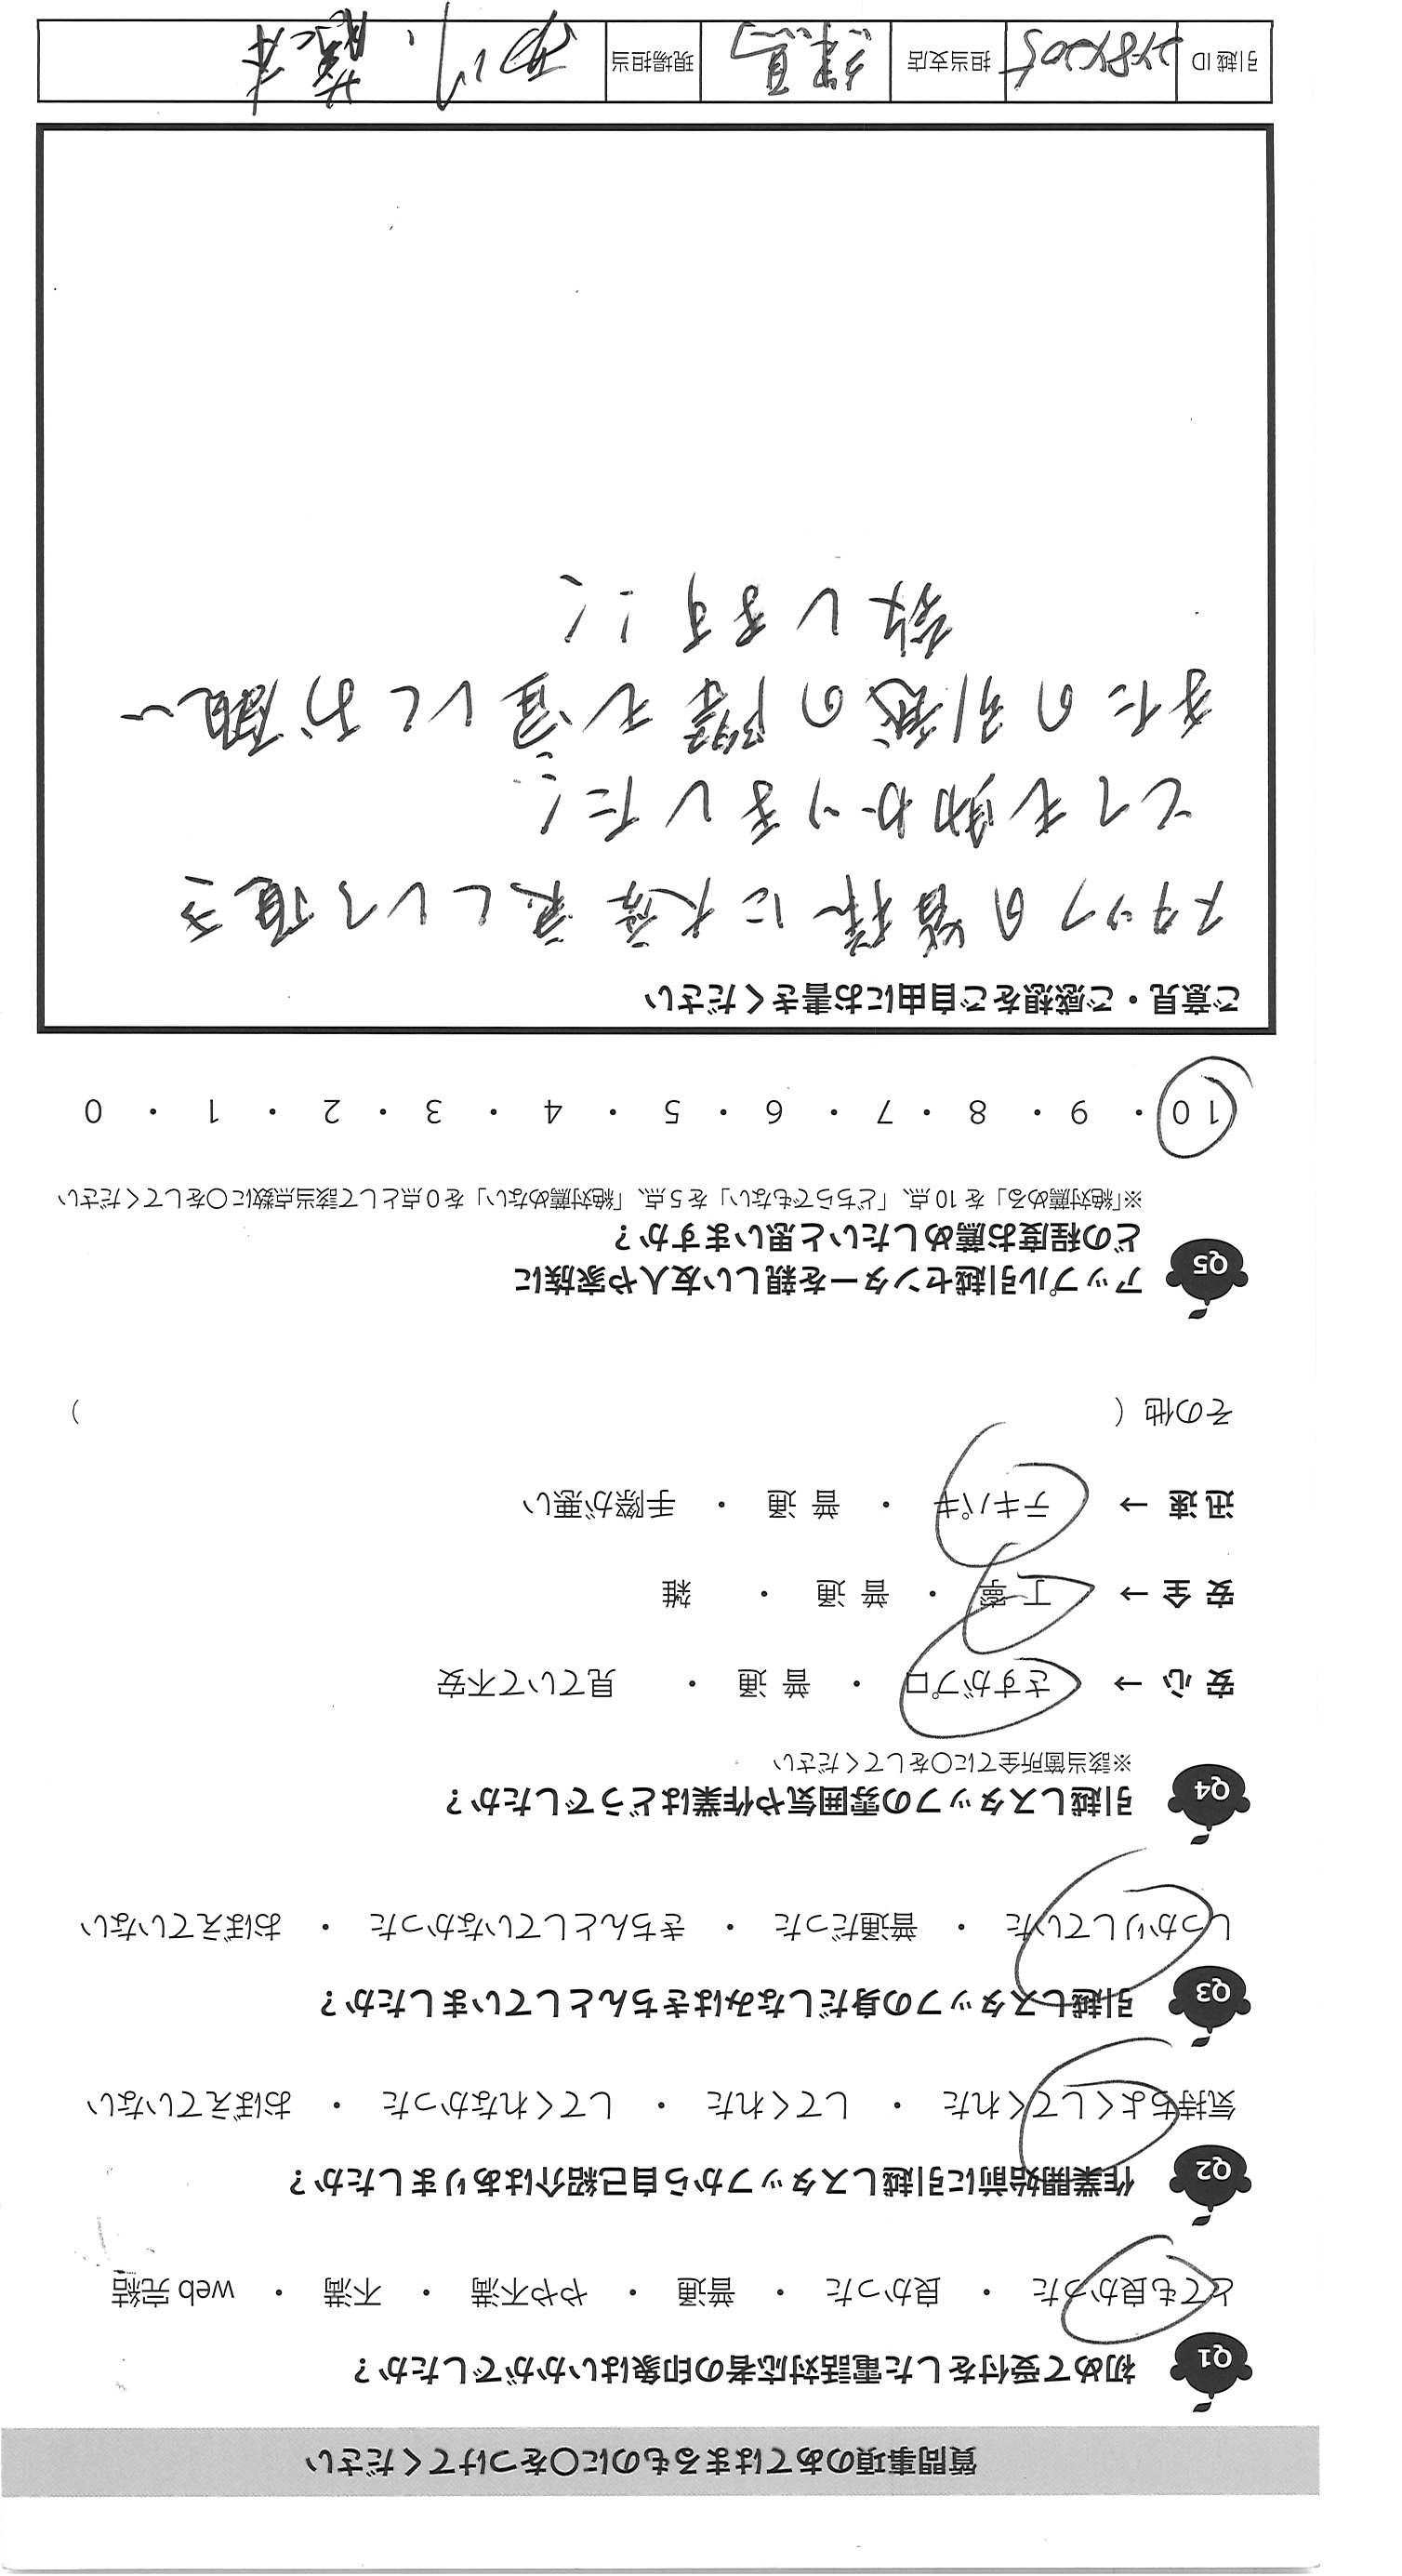 質問事項のあてはまるものに〇をつけてください
Q1 初めて受付をした電話対応者の印象はいかがでしたか？
とても良かった ・ 良かった ・ 普通 ・ やや不満 ・ 不満 ・ web 完結
Q2 作業開始前に引越しスタッフから自己紹介はありましたか？
気持ちよくしてくれた ・ してくれた ・ してくれなかった ・ おぼえていない
Q3 引越しスタッフの身だしなみはきちんとしていましたか？
しっかりしていた ・ 普通だった ・ きちんとしていなかった ・ おぼえていない
Q4 引越しスタッフの雰囲気や作業はどうでしたか？
※該当箇所全てに〇をしてください
安 心 → さすがプロ ・ 普 通 ・ 見ていて不安
安 全 → 丁 寧 ・ 普 通 ・ 雑
迅 速 → テキパキ ・ 普 通 ・ 手際が悪い
その他（ ）
Q5 アップル引越センターを親しい友人や家族に
どの程度お薦めしたいと思いますか？
※「絶対薦める」を 10 点、「どちらでもない」を 5 点、「絶対薦めない」を 0 点として該当点数に〇をしてください
10 ・ 9 ・ 8 ・ 7 ・ 6 ・ 5 ・ 4 ・ 3 ・ 2 ・ 1 ・ 0
ご意見・ご感想をご自由にお書きください
スタッフの皆様に大変良くして頂き
とても助かりました!
またの引越の際も宜しくお願い
致します!!
引越 ID 担当支店 練馬 現場担当